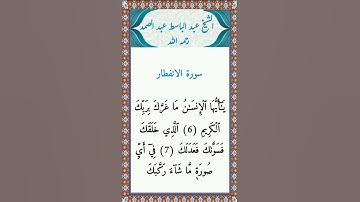 الشيخ عبد الباسط عبد الصمد
رحمه الله
سورة الانفطار
يَـٰٓأَيُّهَا ٱلْإِنسَـٰنُ مَا غَرَّكَ بِرَبِّكَ
ٱلْكَرِيمِ (6) ٱلَّذِي خَلَقَكَ
فَسَوَّىٰكَ فَعَدَلَكَ (7) فِيٓ أَيِّ
صُورَةٍۢ مَّا شَآءَ رَكَّبَكَ